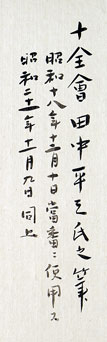 十全會 田中平三氏之筆
昭和十八年十二月十日當番ニ使用ス
昭和二十一年十二月九日 同上